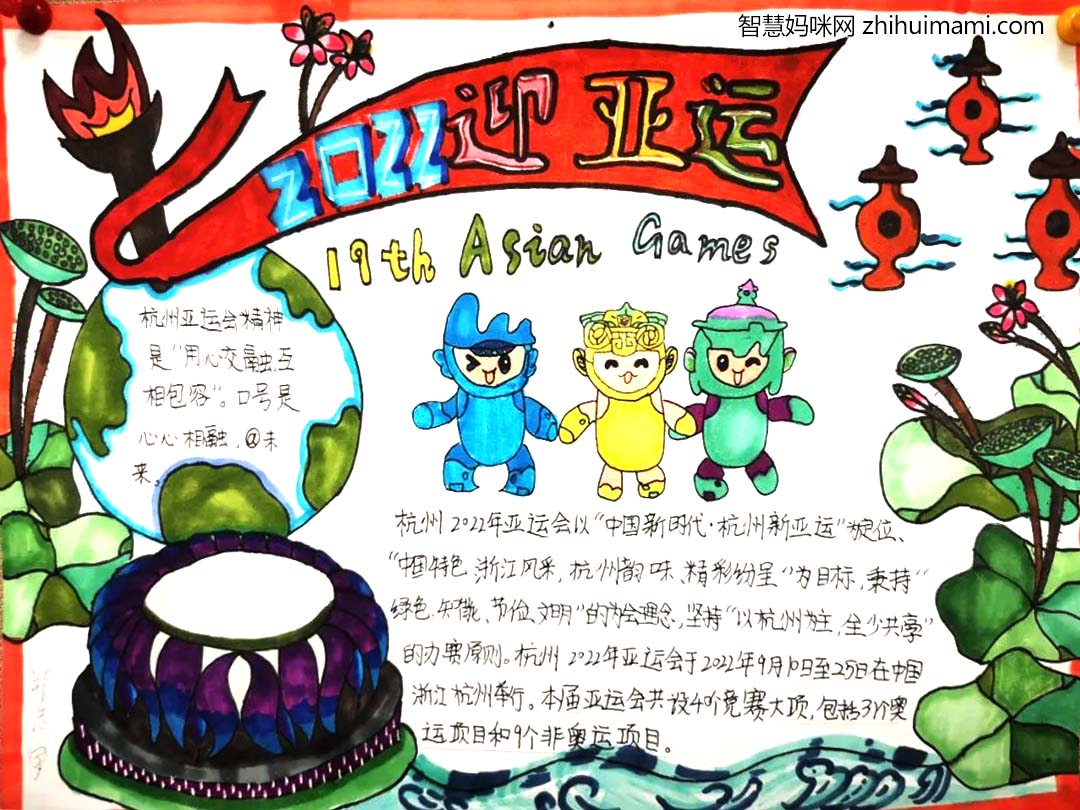 智慧妈咪网 zhihuimami.com
2022迎亚运
19th Asian Games
杭州亚运会精神
是"用心交融,互
相包容"。口号是
心心相融,@未
来。
杭州2022年亚运会以"中国新时代·杭州新亚运"为定位、
"中国特色 浙江风采,杭州韵味、精彩纷呈"为目标,秉持"
绿色、智能、节俭、文明"的办会理念,坚持"以杭州为主,全省共享"
的办赛原则。杭州2022年亚运会于2022年9月10日至25日在中国
浙江杭州举行。本届亚运会共设40个竞赛大项,包括31个奥
运项目和9个非奥运项目。